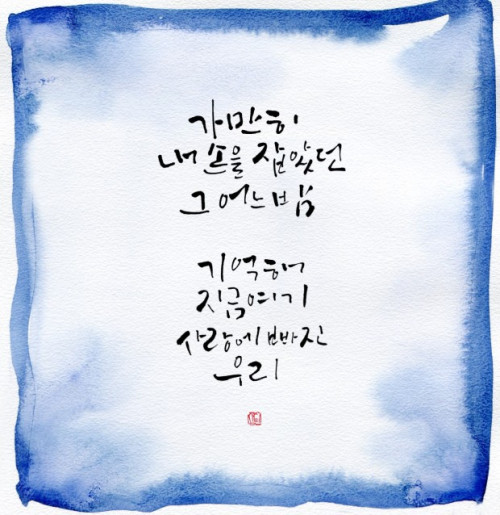 가만히
내 손을 잡았던
그 어느 밤
기억해
지금 여기
사랑에 빠진
우리